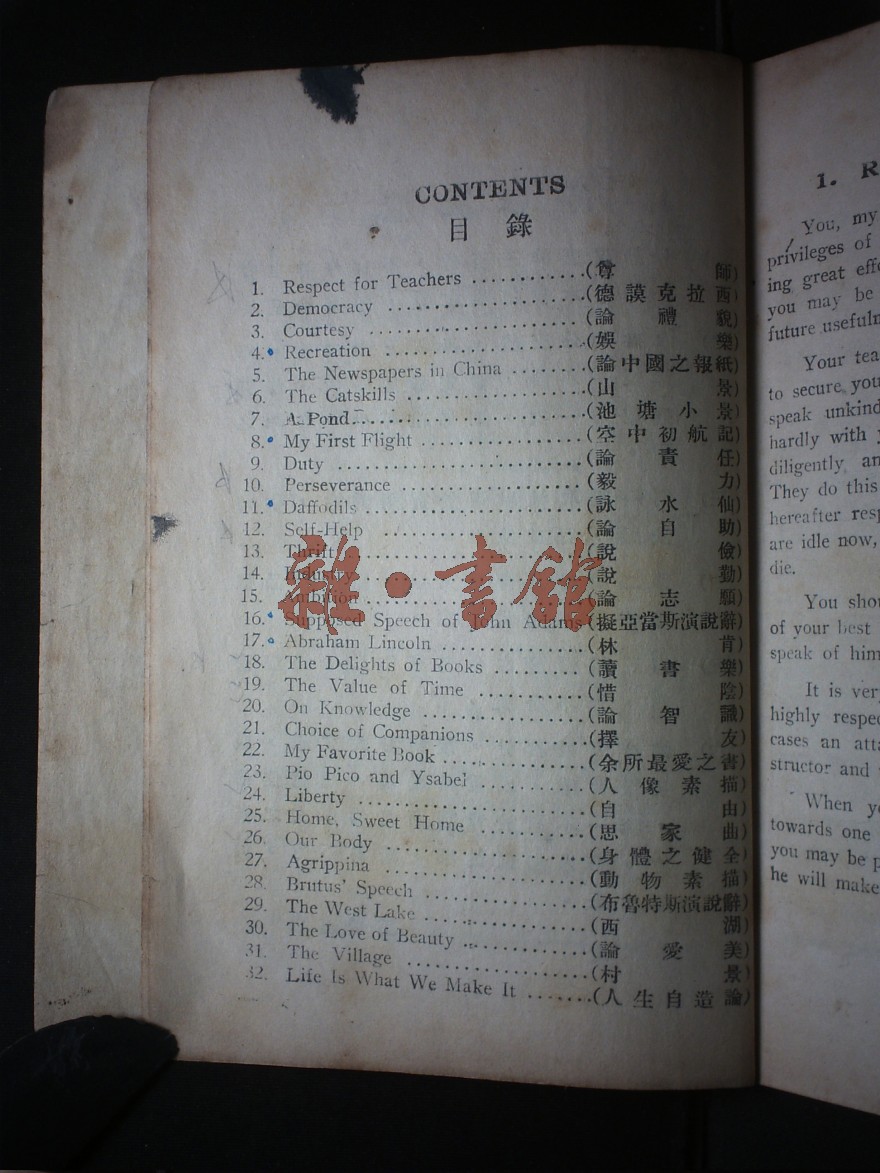 CONTENTS
目錄
1. Respect for Teachers ............(尊師)
2. Democracy ............(德謨克拉西)
3. Courtesy ............(論禮貌)
4. Recreation ............(娛樂)
5. The Newspapers in China ............(論中國之報紙)
6. The Catskills ............(山景)
7. A Pond ............(池塘小景)
8. My First Flight ............(空中初航記)
9. Duty ............(論責任)
10. Perseverance ............(毅力)
11. Daffodils ............(詠水仙)
12. Self-Help ............(論自助)
13. Thrift ............(說儉)
14. Industry ............(說勤)
15. Ambition ............(論志願)
16. Supposed Speech of John Adams (擬亞當斯演說辭)
17. Abraham Lincoln ............(林肯)
18. The Delights of Books ............(讀書樂)
19. The Value of Time ............(惜陰)
20. On Knowledge ............(論智識)
21. Choice of Companions ............(擇友)
22. My Favorite Book ............(余所最愛之書)
23. Pio Pico and Ysabel ............(人像素描)
24. Liberty ............(自由)
25. Home, Sweet Home ............(思家曲)
26. Our Body ............(身體之健全)
27. Agrippina ............(動物素描)
28. Brutus' Speech ............(布魯特斯演說辭)
29. The West Lake ............(西湖)
30. The Love of Beauty ............(論愛美)
31. The Village ............(村景)
32. Life Is What We Make It .......(人生自造論)
雜·書館
1. R
You, my
privileges of
ing great effo
you may be
future usefuln
Your tea
to secure you
speak unkind
hardly with y
diligently an
They do this
hereafter resp
are idle now,
die.
You shou
of your best
speak of him
It is very
highly respec
cases an atta
structor and
When yo
towards one
you may be p
he will make